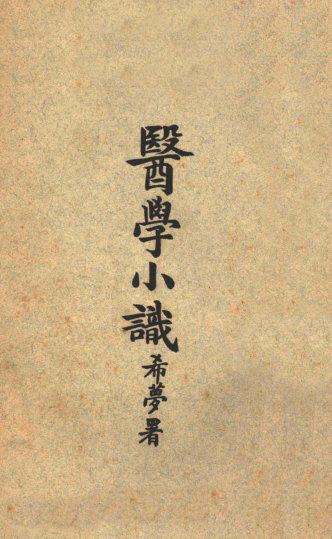 醫學小識
希夢署